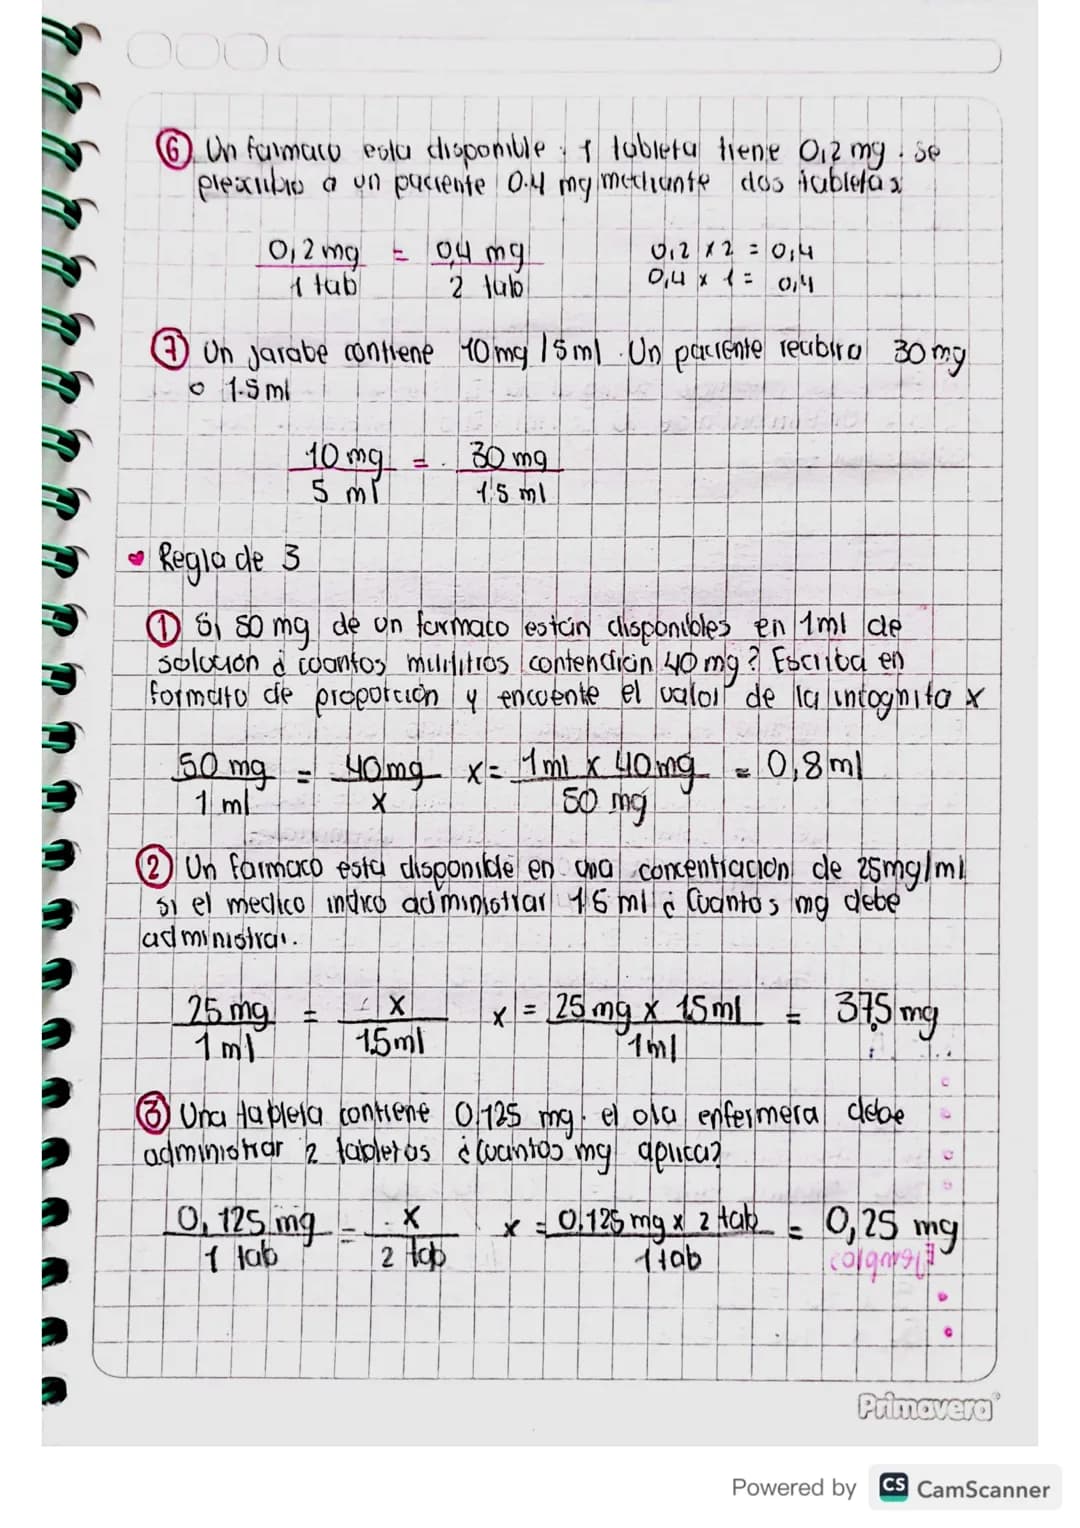 ⑥ Un farmaco esta disponible . 1 tableta tiene 0,2 mg . se
prescribio a un paciente 0.4 mg mediante dos tabletas
0,2 mg = 0,4 mg 0,2 x 2 = 0,4
1 tab 2 tab 0,4 x 1 = 0,4
⑦ Un jarabe contiene 10 mg / 5 ml . Un paciente recibira 30 mg
o 1.5 ml
10 mg = 30 mg
5 ml 1.5 ml
♥ Regla de 3
① Si 50 mg de un farmaco están disponibles en 1 ml de
solución ¿ cuantos mililitros contendrán 40 mg? Escriba en
formato de proporción y encuente el valor de la incognita x
50 mg = 40 mg x = 1 ml x 40 mg = 0,8 ml
1 ml x 50 mg
② Un farmaco esta disponible en una concentracion de 25mg/ml
si el medico indico administrar 1.5 ml ¿ Cuantos mg debe
administrar.
25 mg = x x = 25 mg x 1.5 ml = 37,5 mg
1 ml 1.5 ml 1 ml
③ Una tableta contiene 0,125 mg. el ola enfermera debe
administrar 2 tabletas ¿Cuantos mg aplica?
0,125 mg = x x = 0.125 mg x 2 tab = 0,25 mg
1 tab 2 tab 1 tab
Primavera®
Powered by CS CamScanner